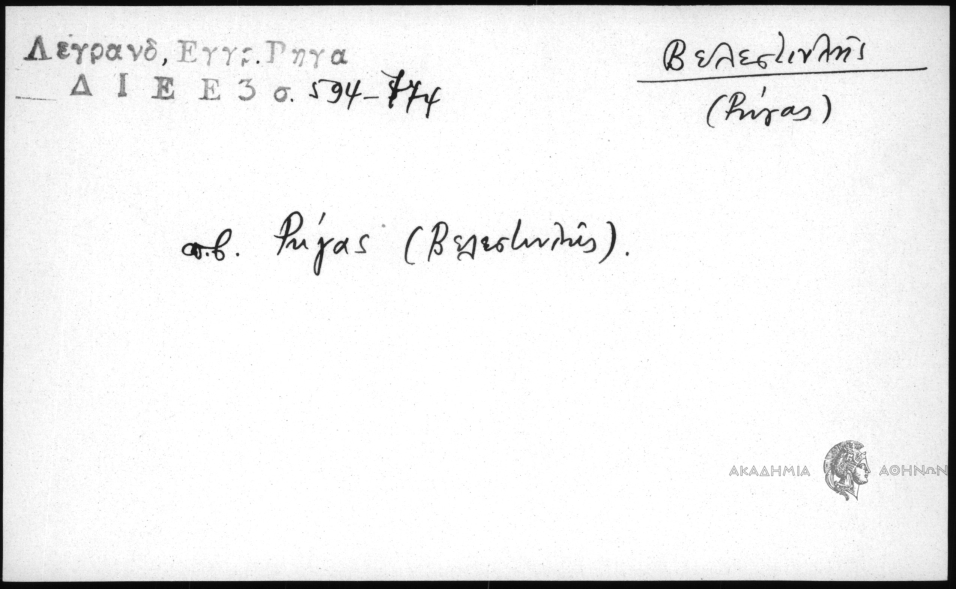 Λεγρανδ, Εγγρ. Ρηγα
Δ Ι Ε Ε 3 σ. 594-774
Βελεστινλής
(Ρήγας)
π.β. Ρήγας (Βελεστινλής).
ΑΚΑΔΗΜΙΑ ΑΘΗΝΩΝ